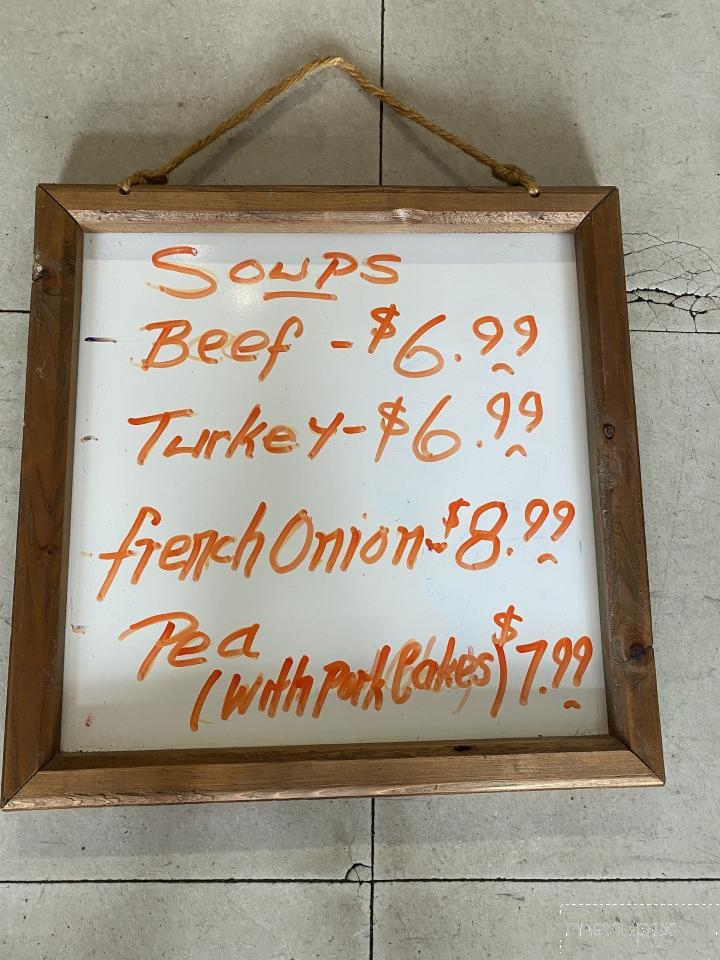 Soups
Beef - $6.99
Turkey - $6.99
french Onion - $8.99
Pea
(with Pork Cakes) $7.99